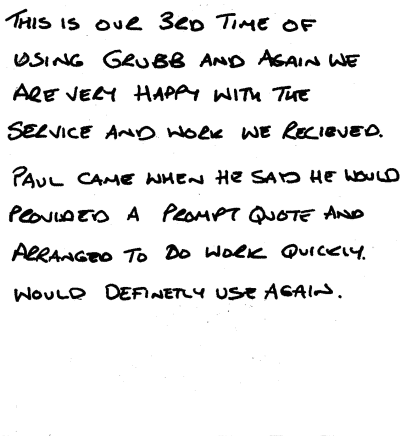 THIS IS OUR 3RD TIME OF
USING GRUBB AND AGAIN WE
ARE VERY HAPPY WITH THE
SERVICE AND WORK WE RECIEVED.
PAUL CAME WHEN HE SAID HE WOULD
PROVIDED A PROMPT QUOTE AND
ARRANGED TO DO WORK QUICKLY.
WOULD DEFINETLY USE AGAIN.